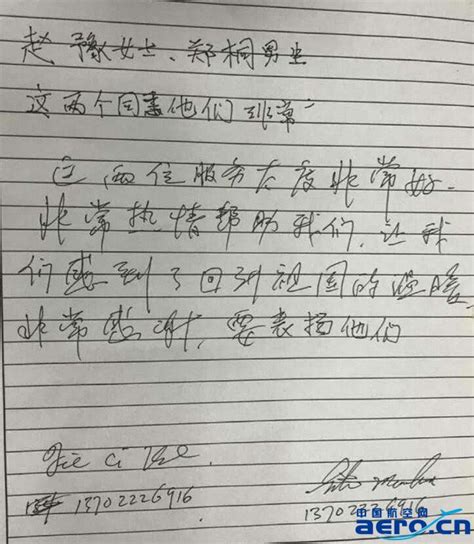 赵豫女士、郑桐男士
这两个同事他们非常
这两位服务态度非常好.
非常热情帮助我们,让我
们感到了回到祖国的温暖,
非常感谢,要表扬他们
13702226916
13702226916
中国航空网
aero.cn